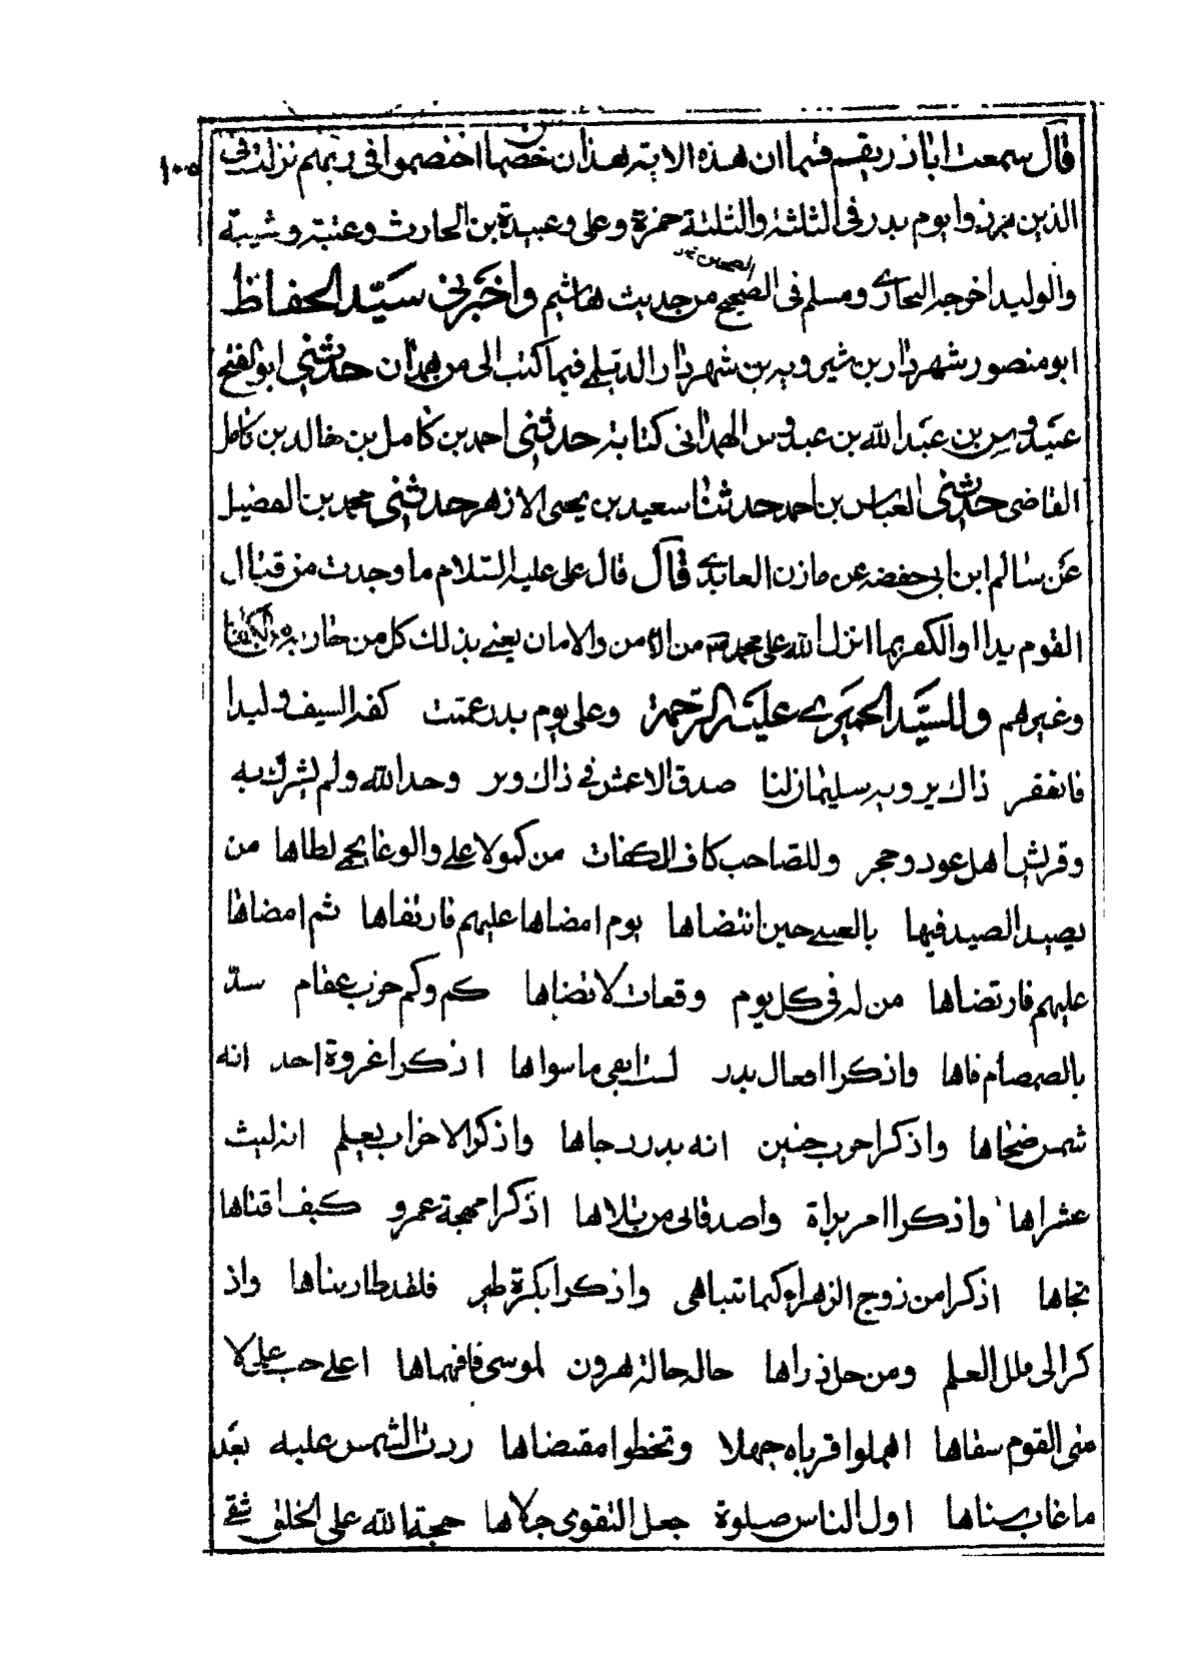 قال سمعت اباذر يقسم قسما ان هذه الاية هذان خصما اختصموا فى ربهم نزلت فى
١٠٥
الذين برزوا يوم بدر فى الثلثة والثلثة حمزة وعلى وعبيدة بن الحارث وعتبة وشيبة
والوليد اخرجه البخارى ومسلم فى الصحيح من حديث هاشم واخبرنى سيد الحفاظ
ابو منصور شهردار بن شيرويه بن شهردار الديلمى فيما كتب الى من همدان حدثنى ابو الفتح
عبدوس بن عبد الله بن عبدوس الهمدانى كتابة حدثنى احمد بن كامل بن خالد بن كامل
القاضى حدثنى العباس بن احمد حدثنا سعيد بن يحيى الازهر حدثنى محمد بن الفضيل
عن سالم ابن ابى حفضه عن مازن العابدى قال قال على عليه السلام ما وجدت من قتال
القوم بدا او الكفر بما انزل الله على محمد من الامن والامان يعنى بذلك كل من حاربه
وغيرهم وللسيد الحميرى عليه الرحمة وعلى يوم بدر عمت كفه السيف وليدا
فانعقر ذاك يرويه سليمان لنا صدق الاعمش فى ذاك وبر وحد الله ولم يشرك به
وقريش اهل عود وحجر وللصاحب كاف الكفات من كمولا على والوغا يحى لطاها من
يصيد الصيد فيها بالعبى حين انتضاها يوم امضاها عليهم فارتفاها ثم امضاها
عليهم فارتضاها من له فى كل يوم وقعات لا تضاها كم وكم حرب عقام سد
بالصمصام فاها واذكرا افعال بدر لست ابغى ما سواها اذكرا غزوة احد انه
شمس ضحاها واذكرا حرب حنين انه بدر دجاها واذكرا الاحزاب يعلم انه ليث
عشراها واذكرا امر براة واصدقانى من تلاها اذكرا مهجة عمرو كيف افناها
تجاها اذكرا من زوج الزهراء كيما تتباهى واذكرا بكرة طير فلقد طار بناها واذ
كرا لى ملل العلم ومن حل ذراها حاله حالة هرون لموسى فافهماها اعلى حب على لا
منى القوم سفاها اهملوا قرباه جهلا وتخطوا مقتضاها ردت الشمس عليه بعد
ما غاب سناها اول الناس صلوة جعل التقوى حلاها حجة الله على الخلق شقى